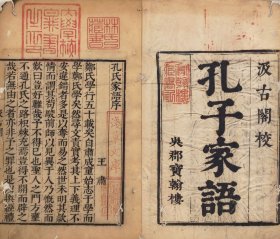 汲古閣校
孔子家語
吳郡寶翰樓
孔氏家語序
王肅
鄭氏學行五十載矣自肅成童始志于學而
學鄭氏學矣然尋文責實考其上下義理不
安違錯者多是以奪而易之然世未明其款
情而謂其苟駁前師以見異于人乃慨然而
歎曰豈好難哉予不得已也聖人之門方壅
不通孔氏之路枳棘充焉豈得不開而辟之
哉若無由之者亦非予之罪也是以撰經禮